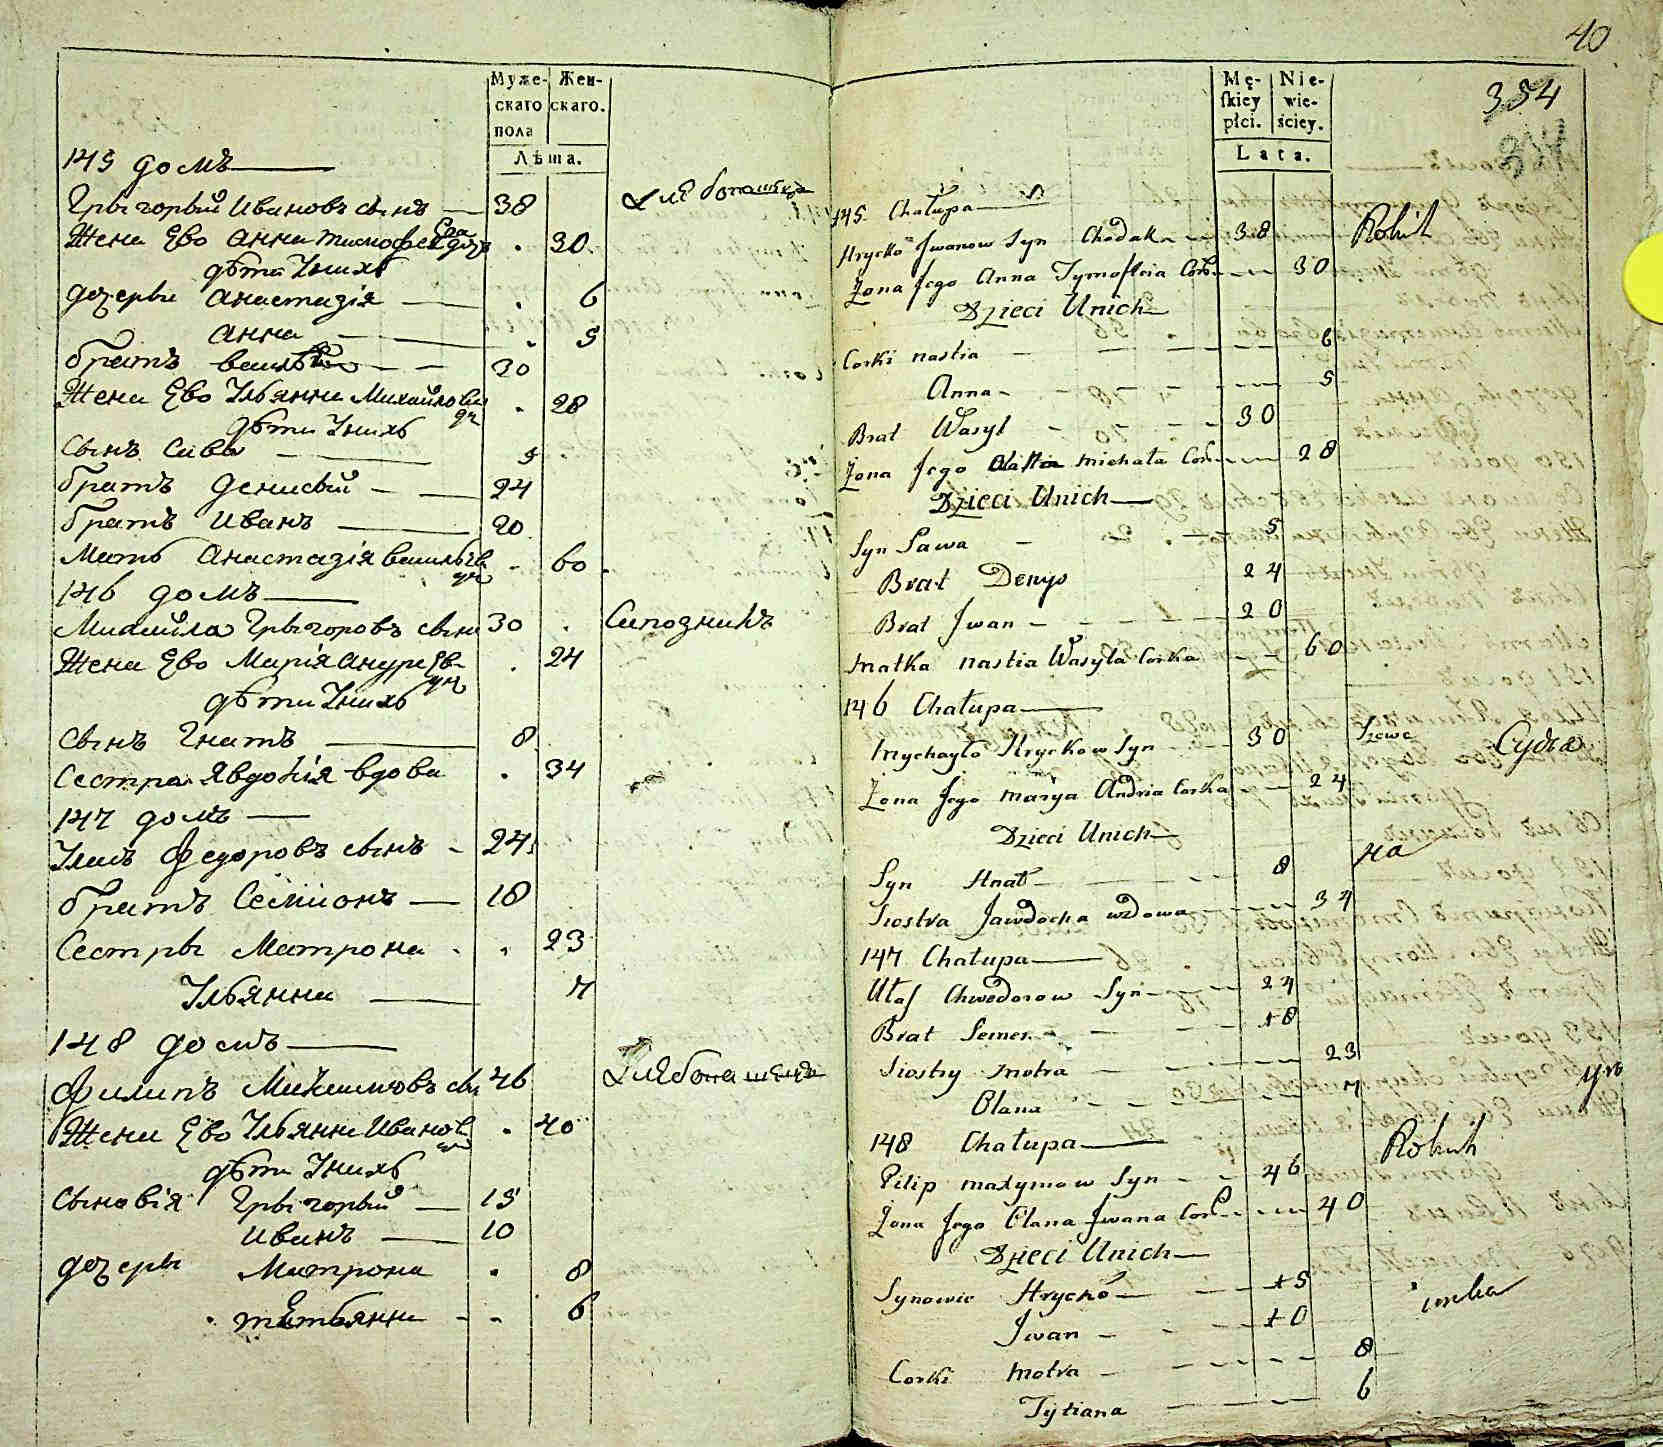 Муже- Жен-
скаго скаго.
пола
Лѣта.
145 домъ
Грыгорый Ивановъ сынъ 38 Хлебопашецъ
Жена Ево Анна Тимофеева дочь 30
дѣти Ихъ
дочеры Анастазія 6
Анна 5
братъ василь 30
Жена Ево Ульянна Михайлова дч 28
дѣти Ихъ
Сынъ Сава 5
братъ Денисый 24
братъ Иванъ 20
Мать Анастазія васильева дч 60
146 домъ
Михайла Грыгоровъ сынъ 30 Сапожникъ
Жена Ево Марія Андреева дч 24
дѣти Ихъ
Сынъ Гнатъ 8
Сестра Явдокія вдова 34
147 домъ
Федоровъ сынъ 24
братъ Семионъ 18
Сестры Матрона 23
Ульянна 7
148 домъ
Филипъ Максимовъ сы 46 Хлебопашецъ
Жена Ево Ульянна Иванова дч 40
дѣти Ихъ
Сыновія Грыгорый 15
Иванъ 10
дочеры Матрона 8
Татьянна 6
40
Mę- Nie-
skiey wie-
płci. ściey.
Lata.
354
145 Chałupa
Hrycko Jwanow Syn Chodak 38 Robik
Żona Jego Anna Tymofieia Cor. 30
Dzieci Unich
Corki nastia 6
Anna 5
Brat Wasyl 30
Żona Jego michała Cor. 28
Dzieci Unich
Syn Sawa 5
Brat Denys 24
Brat Jwan 20
matka nastia Wasyla Corka 60
146 Chałupa
mychayło Hryckow Syn 30 Szewc Судьа
Żona Jego marya Andria Corka 24
Dzieci Unich
Syn Hnat 8 на
Siostra Jawdocha wdowa 34
147 Chałupa
Chwedorow Syn 24
Brat Semen 18
Siostry motra 23
Olana 7
148 Chałupa Robik
Pilip maxymow Syn 46
Żona Jego Olana Jwana Cor. 40
Dzieci Unich
Synowie Hrycko 15
Jwan 10
Corki motra 8
Tytiana 6